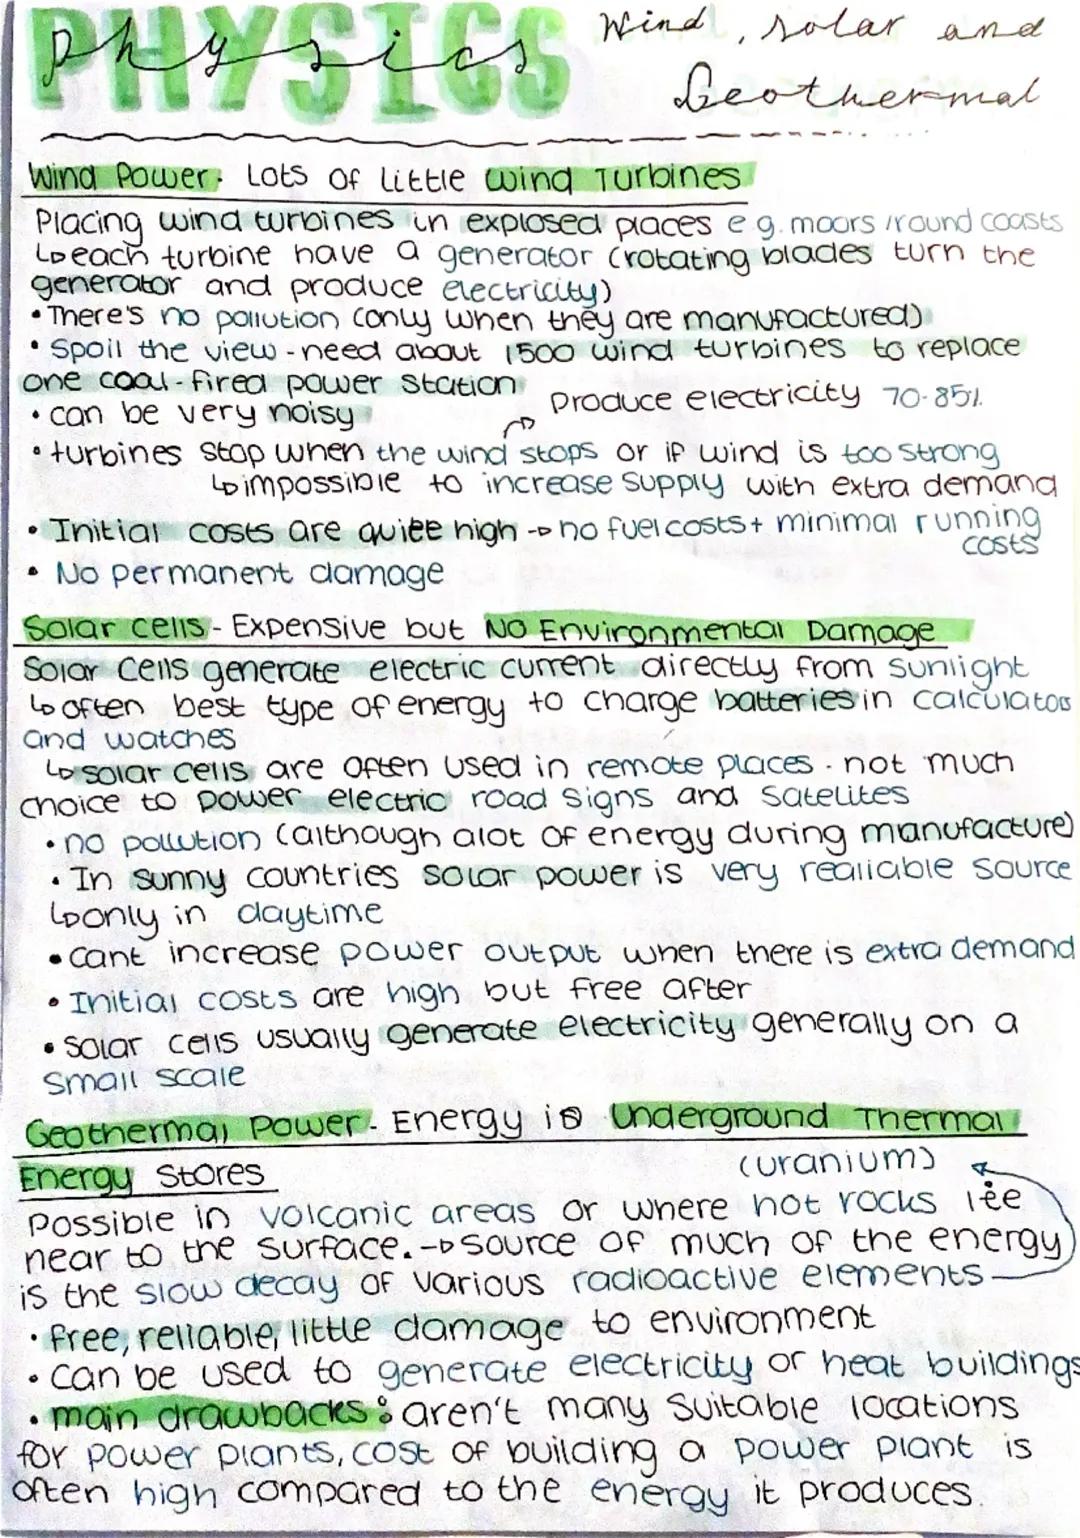 PHYSICS
physics
Wind, solar and
Geothermal
Wind Power. Lots of Little Wind Turbines
Placing wind turbines in explosed places e.g. moors /round coasts
↳each turbine have a generator (rotating blades turn the
generator and produce electricity)
• There's no pollution (only when they are manufactured)
• Spoil the view - need about 1500 wind turbines to replace
one coal-fired power station
• can be very noisy
Produce electricity 70-85%
• turbines stop when the wind stops or if wind is too strong
↳impossible to increase supply with extra demand
• Initial costs are quiet high → no fuel costs + minimal running
costs
• No permanent damage
Solar cells - Expensive but NO Environmental Damage
Solar Cells generate electric current directly from sunlight
↳often best type of energy to charge batteries in calculators
and watches
↳solar cells are often used in remote places. not much
choice to power electric road signs and satelites
• no pollution (although alot of energy during manufacture)
• In sunny countries solar power is very realiable source
↳only in daytime
• cant increase power output when there is extra demand
• Initial costs are high but free after
• Solar cells usually generate electricity generally on a
small scale
Geothermal Power. Energy is Underground Thermal
Energy Stores
(uranium)
Possible in volcanic areas or where hot rocks lie
near to the surface. → source of much of the energy
is the slow decay of various radioactive elements
• free, reliable, little damage to environment
• can be used to generate electricity or heat buildings
• main drawbacks: aren't many suitable locations
for power plants, cost of building a power plant is
often high compared to the energy it produces.